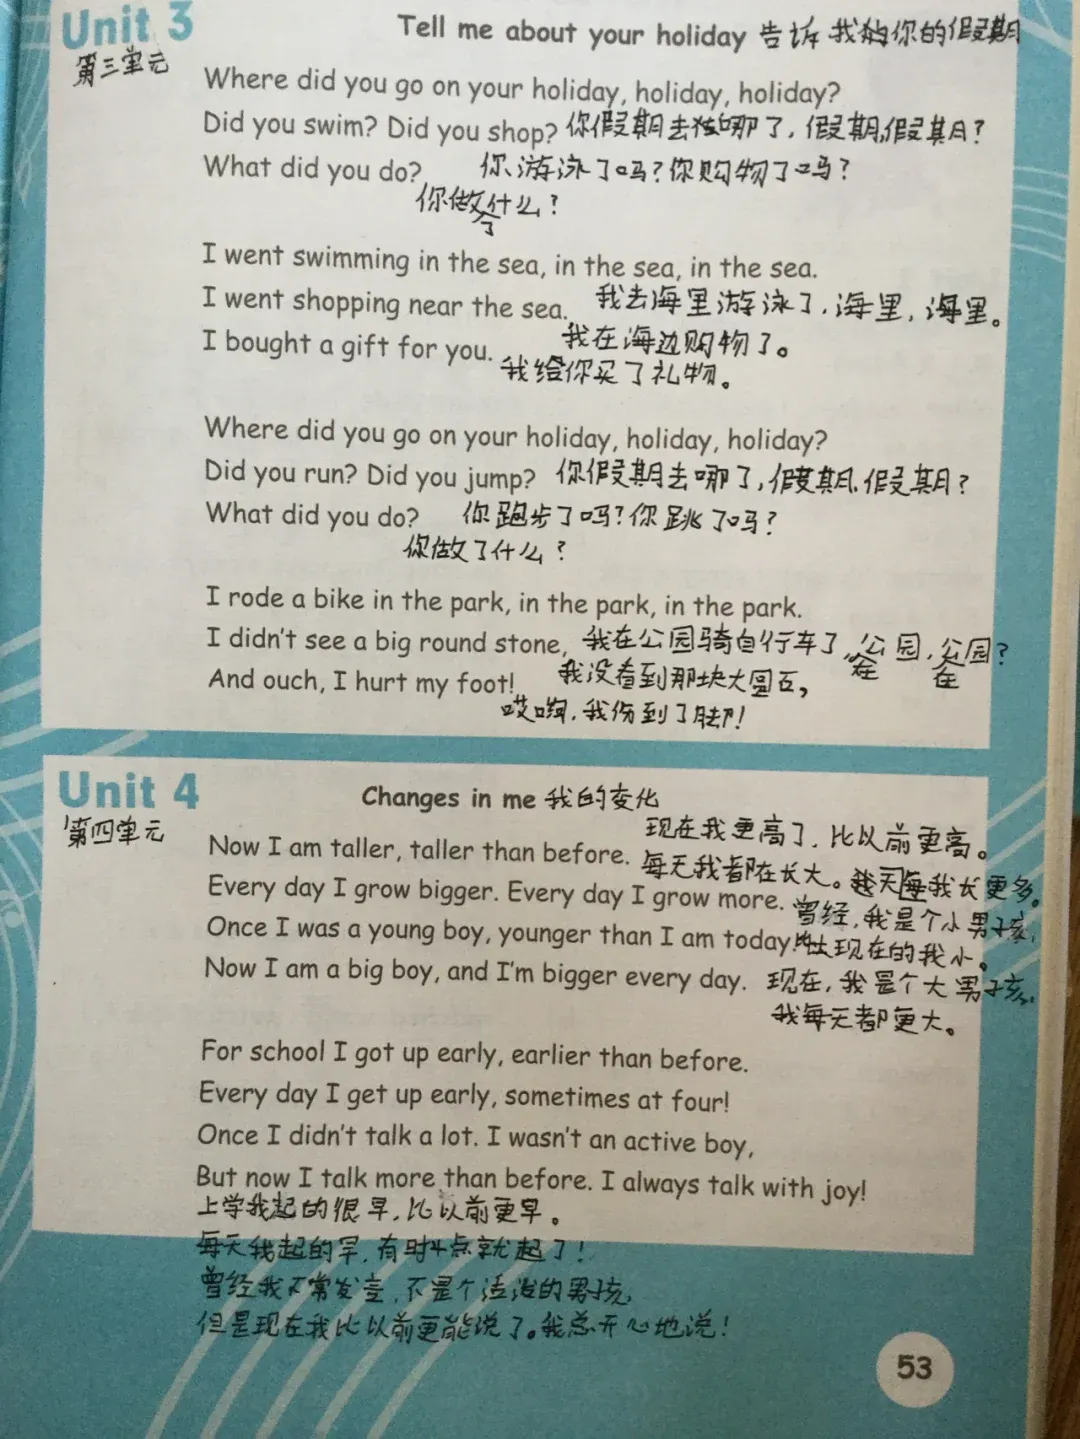 Unit 3
第三单元
Tell me about your holiday 告诉我你的假期
Where did you go on your holiday, holiday, holiday?
Did you swim? Did you shop? 你假期去哪了，假期，假期？
What did you do? 你游泳了吗？你购物了吗？
你做了什么？
I went swimming in the sea, in the sea, in the sea.
I went shopping near the sea. 我去海里游泳了，海里，海里。
我在海边购物了。
I bought a gift for you. 我给你买了礼物。
Where did you go on your holiday, holiday, holiday?
Did you run? Did you jump? 你假期去哪了，假期，假期？
What did you do? 你跑步了吗？你跳了吗？
你做了什么？
I rode a bike in the park, in the park, in the park.
I didn't see a big round stone, 我在公园骑自行车了，在公园，在公园？
And ouch, I hurt my foot! 我没看到那块大圆石，
哎哟，我伤到了脚！
Unit 4
第四单元
Changes in me 我的变化
现在我更高了，比以前更高。
Now I am taller, taller than before. 每天我都在长大。
Every day I grow bigger. Every day I grow more. 每天我长更多。
曾经，我是个小男孩，
Once I was a young boy, younger than I am today! 比现在的我小。
Now I am a big boy, and I'm bigger every day. 现在，我是个大男孩，
我每天都更大。
For school I got up early, earlier than before.
Every day I get up early, sometimes at four!
Once I didn't talk a lot. I wasn't an active boy,
But now I talk more than before. I always talk with joy!
上学我起的很早，比以前更早。
每天我起的早，有时4点就起了！
曾经我不常发言，不是个活泼的男孩，
但是现在我比以前更能说了。我总开心地说！
53